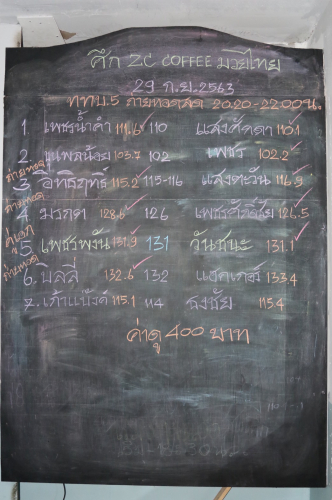 ศึก Z.C COFFEE มวยไทย
29 ก.ย. 2563
ททบ.5 ถ่ายทอดสด 20.20-22.00น.
1 เพชรน้ำคำ 111.6 110 แสงศักดา 110.1
2. ขุนพลน้อย 103.7 102 เพชร 102.2
ถ่ายทอด
3 อิทธิฤทธิ์ 115.2 115-116 แสงตะวัน 116.9
ถ่ายทอด
4 มรกต 128.6 126 เพชรศักดิ์ชัย 126.5
คู่เอก
5 เพชรพงัน 131.9 131 วันชนะ 131.1
ถ่ายทอด
6. บิลลี่ 132.6 132 แบคเกอร์ 133.4
7. เก้าแบงค์ 115.1 114 ธงชัย 115.4
ค่าดู 400 บาท